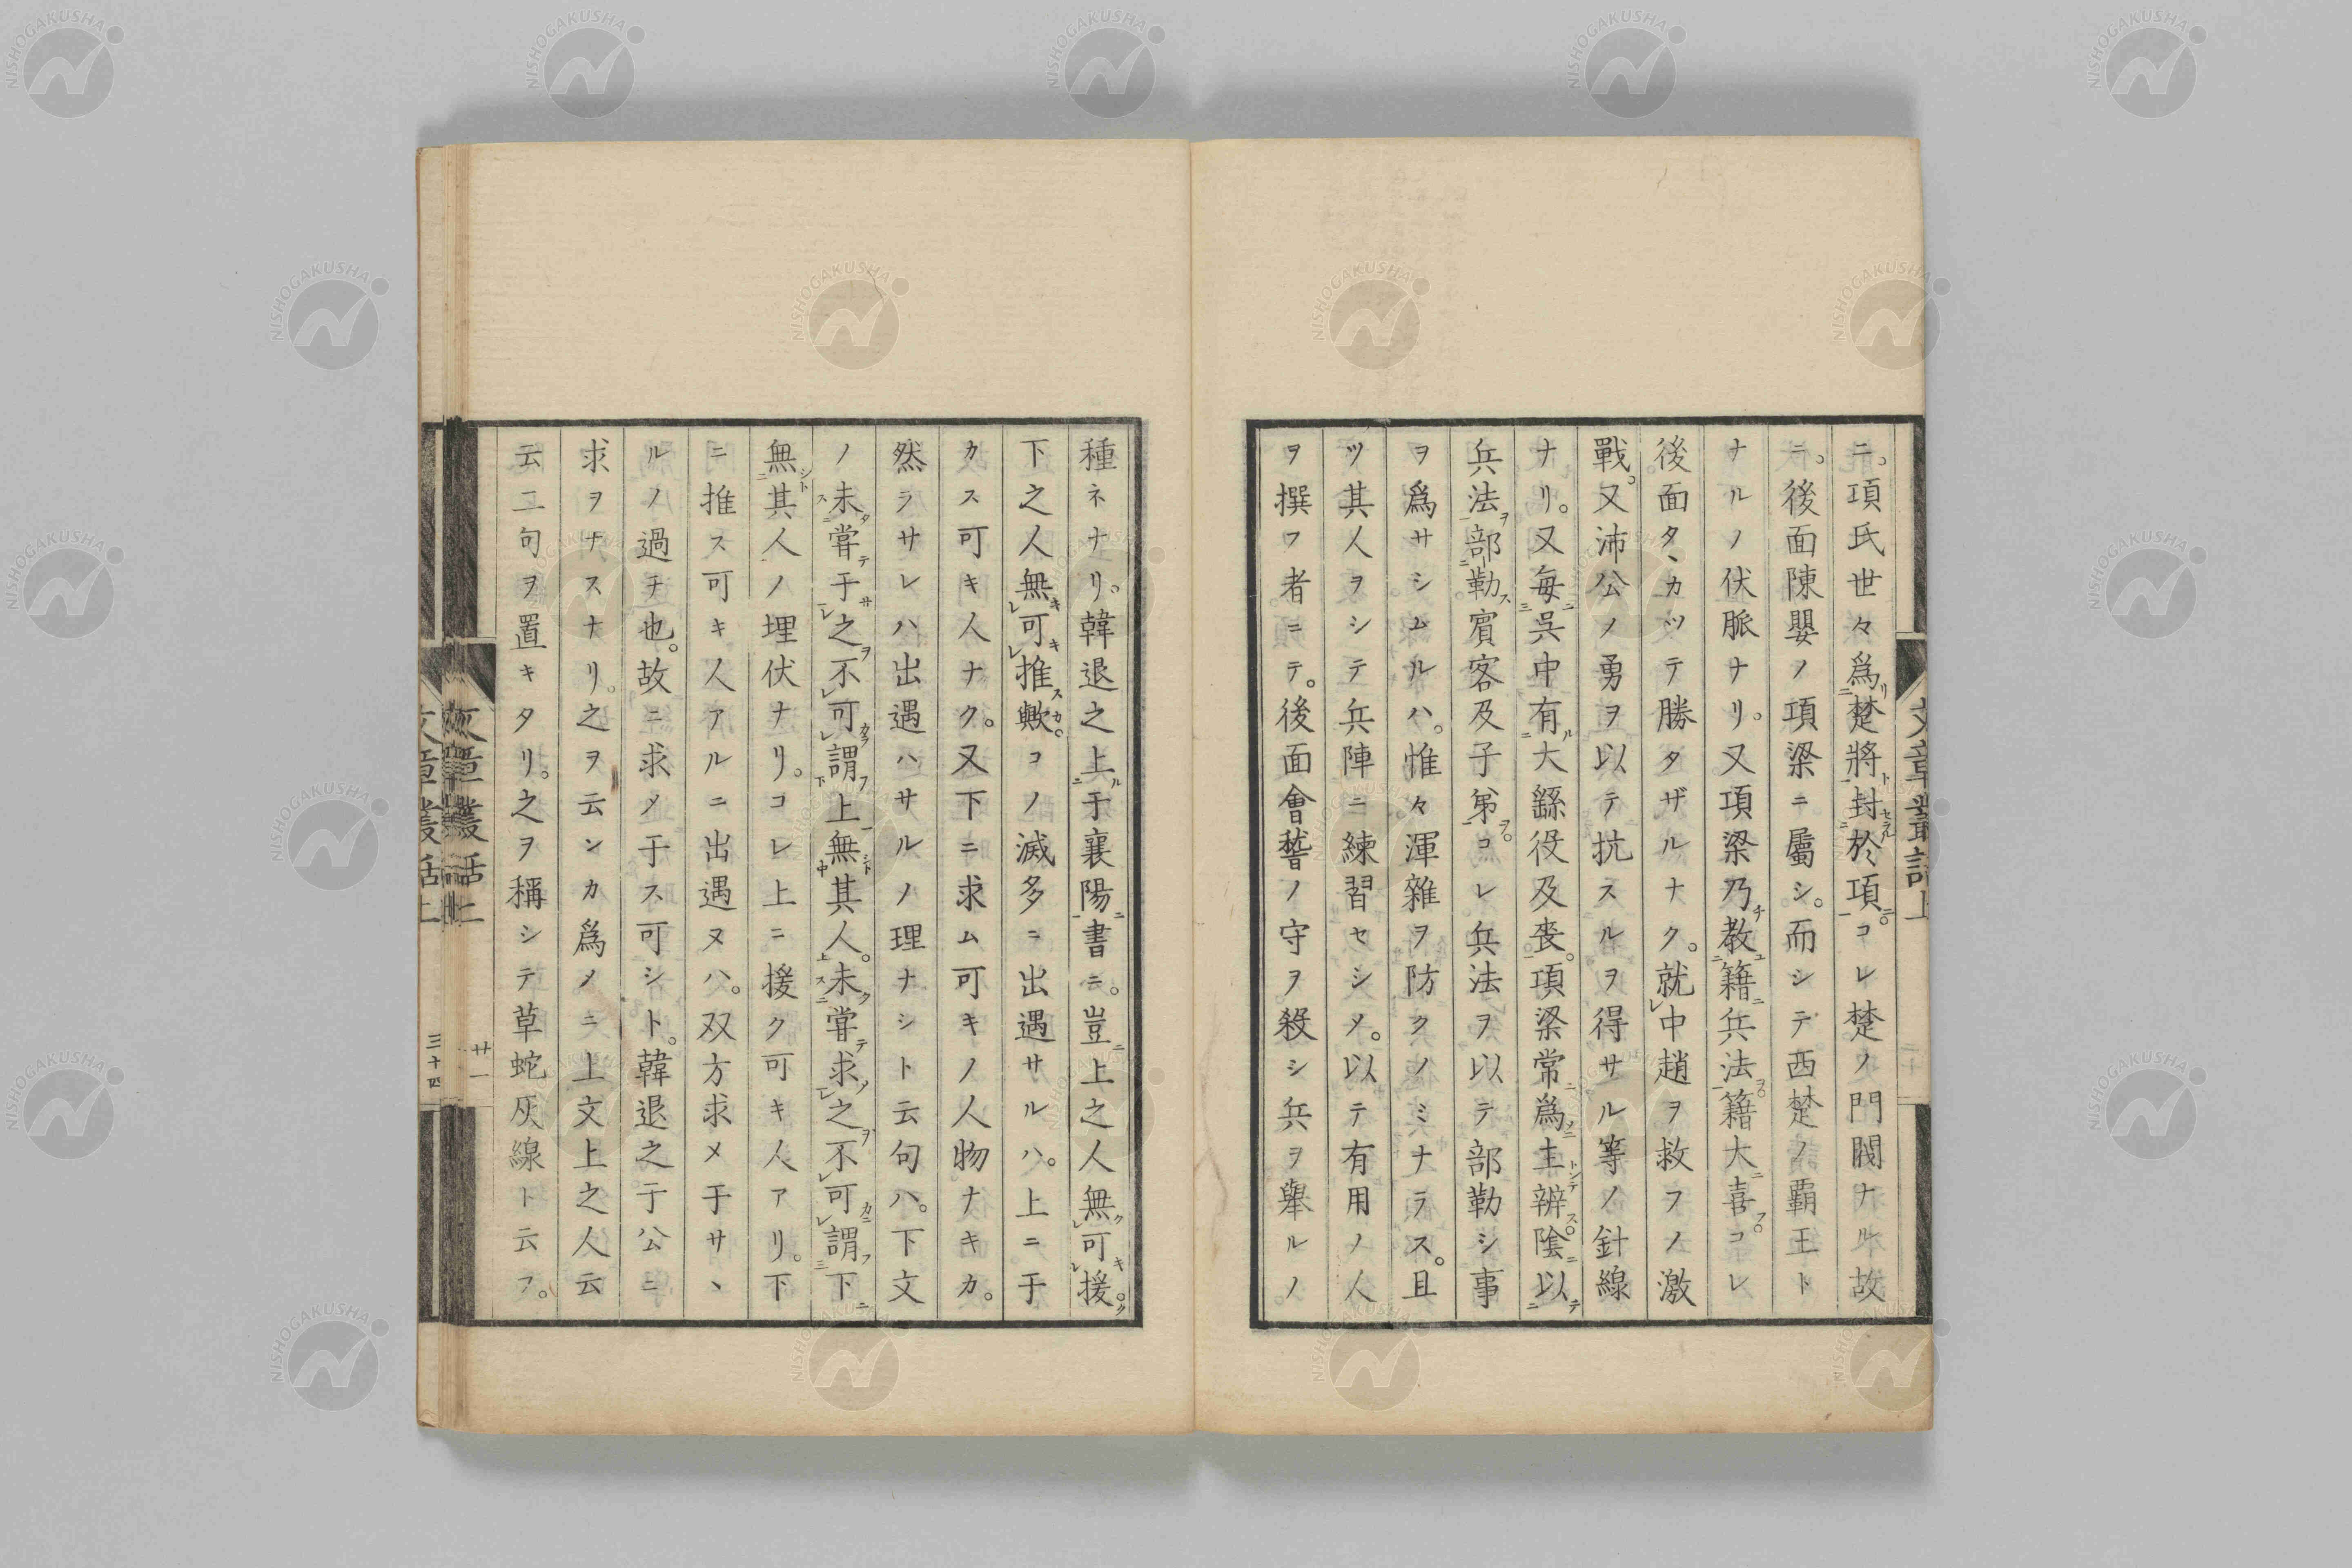 ニ。項氏世々爲楚將封於項。コレ楚ノ門閥ナル故
ニ。後面陳嬰ノ項梁ニ屬シ。而シテ西楚ノ覇王ト
ナルノ伏脈ナリ。又項梁乃教籍兵法。籍大喜。コレ
後面タヽカツテ勝タザルナク。就中趙ヲ救フノ激
戰。又沛公ノ勇ヲ以テ抗スルヲ得サル等ノ針線
ナリ。又毎呉中有大繇役及喪。項梁常爲主辨。陰以
兵法部勒賓客及子弟。コレ兵法ヲ以テ部勒シ事
ヲ爲サシムルハ。惟々渾雜ヲ防クノミナラス。且
ツ其人ヲシテ兵陣ニ練習セシメ。以テ有用ノ人
ヲ撰フ者ニテ。後面會稽ノ守ヲ殺シ兵ヲ舉ルノ
種子ナリ。韓退之上于襄陽書ニ。豈上之人無可援。
下之人無可推歟。コノ滅多ニ出遇サルハ。上ニ于
カス可キ人ナク。又下ニ求ム可キノ人物ナキカ。
然ラサレハ出遇ハサルノ理ナシト云句ハ。下文
ノ未甞于之不可謂上無其人。未甞求之不可謂下
無其人ノ埋伏ナリ。コレ上ニ援ク可キ人アリ。下
ニ推ス可キ人アルニ出遇ヌハ。双方求メ于サヽ
ルノ過チ也。故ニ求メ于ス可シト。韓退之于公ニ
求ヲナスナリ。之ヲ云ンカ爲メニ上文上之人云
云二句ヲ置キタリ。之ヲ稱シテ草蛇灰線ト云フ。
文章叢話上
廿一
三十四